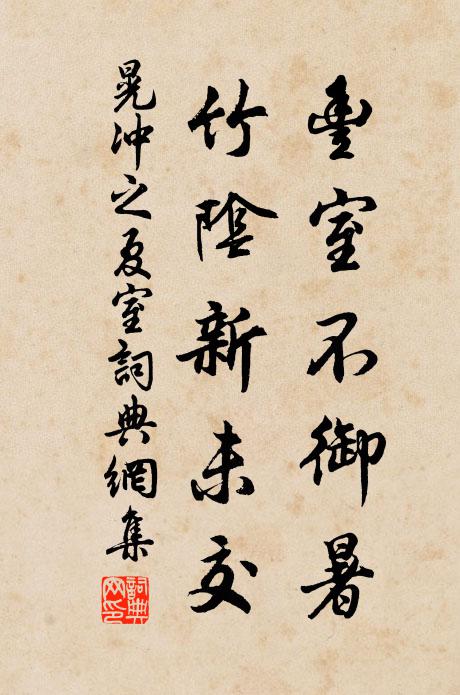 豐室不御暑
竹陰新未交
晁冲之夏室詞典網集
詞典
网印